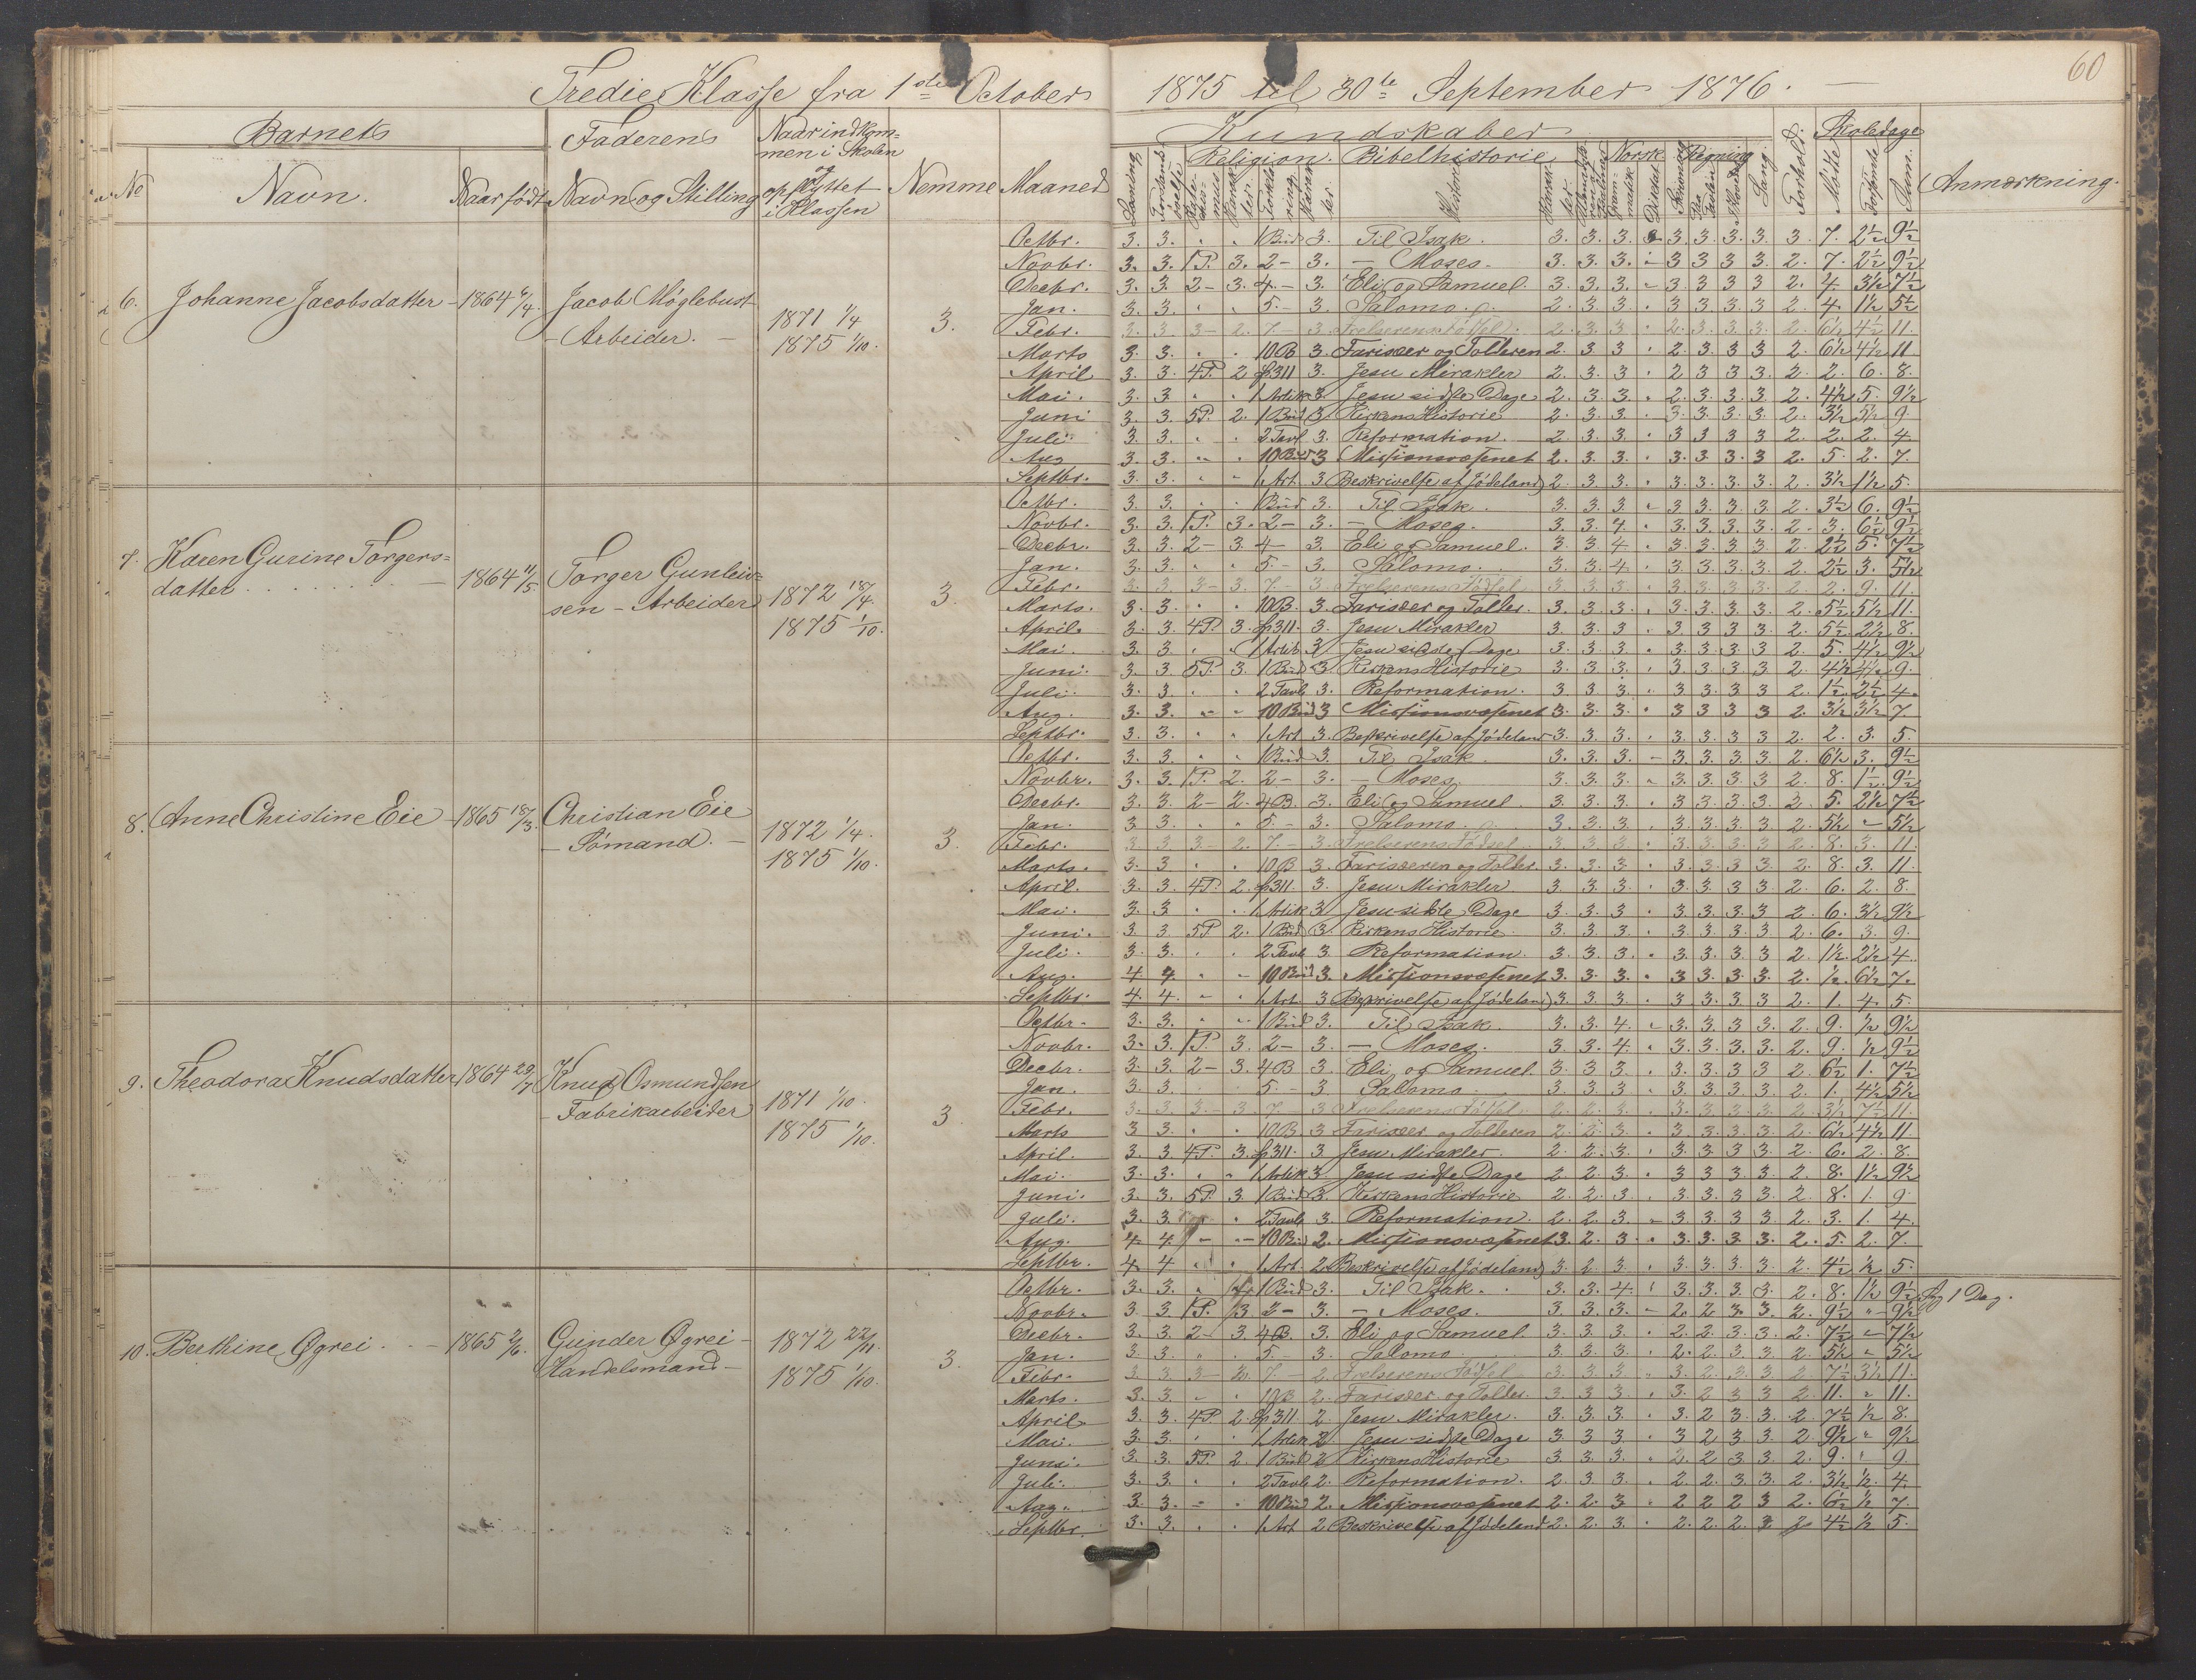 60
Tredie Klasse fra 1ste October 1875 til 30te September 1876.
Barnets
Faderens
Naar indkom-
men i Skolen
og
opflyttet
i Klassen
Kundskaber
Forhold.
Skoledage
No
Navn.
Naar født
Navn og Stilling
Nemme
Maaned
Religion.
Bibelhistorie
Norsk
Regning
Sang.
Mødte
Forsømte
Sum.
Anmærkning.
6. Johanne Jacobsdatter - 1864 Jacob Møglebust
- Arbeider. -
1871 1/4
1875 1/10.
3.
Octbr. 3. 3. 1 Bud 3. Til Isak. 3. 3. 3. 3. 3. 3. 3. 3. 7. 2½ 9½
Novbr. 3. 3. 1P. 3. 2- 3. - Moses. 3. 3. 3. - 3 3 3 3. 2. 7. 2½ 9½
Decbr. 3. 3. 2- 3. 4.- 3. Eli og Samuel. 3. 3. 3. - 3. 3 3 3 2. 4. 3½ 7½
Jan. 3. 3. 5.- 3. Salomo. 2. 3. 3. 3. 3. 3. 3 2. 4. 1½ 5½
Febr. 3. 3. 3- 2. 7.- 3. Frelserens Fødsel. 2. 3. 3. 2. 3. 3. 3. 2. 6½ 4½ 11.
Marts 3. 3. 10B 3. Farisæer og Tolderen 2. 3 3 2. 3. 3 3 2. 6½ 4½ 11
April 3. 3. 4P. 2 §311 3. Jesu Mirakler 2. 3. 3 2 3 3 3. 2. 2. 6. 8.
Mai. 3. 3 1 Artik 3 Jesu sidste Dage 2. 3. 3. 2. 3. 3. 3 2. 4½ 5. 9½
Juni 3. 3. 5P. 2. 1 Bud 3. Kirkens Historie 2. 3. 3. 3. 3. 3. 3. 2. 3½ 5½ 9.
Juli 3. 3. 2 Tavl 3. Reformation. 2. 3. 3. 3 3 3 3 2. 2. 2. 4.
Aug 3. 3. 10 Bud 3 Missionsvæsenet 2. 3. 3. 3. 3. 3. 3 2. 5. 2. 7.
Septbr. 3. 3. 1 Art. 3 Beskrivelse af Jødeland 2. 3. 3. 3. 3. 3. 3. 2. 3½ 1½ 5.
7. Karen Gurine Torgers-
datter 1864 11/5. Torger Gunleiv-
sen - Arbeider
1872 18/4.
1875 1/10.
3.
Octbr. 3. 3. 1 Bud 3. Til Isak. 3. 3. 3. 3. 3. 3. 3. 2. 3½ 6. 9½
Novbr. 3. 3. 1P. 3. 2- 3. - Moses. 3. 3. 4. 3. 3. 3. 3. 2. 3. 6½ 9½
Decbr. 3. 3. 2- 3. 4- 3. Eli og Samuel. 3. 3. 4. 3. 3. 3. 3. 2. 2½ 5. 7½
Jan. 3. 3. 5.- 3. Salomo. 3. 3. 4. 3. 3. 3. 3. 2. 2½ 3. 5½
Febr. 3. 3. 3- 3. 7.- 3. Frelserens Fødsel 3. 3. 3. 3. 3. 3. 3. 2. 2. 9. 11.
Marts. 3. 3. 10B. 3. Farisæer og Tolder. 3. 3. 3. 3. 3. 3. 3. 2. 5½ 5½ 11.
April. 3. 3. 4P. 3. §311. 3. Jesu Mirakler 3. 3. 3 3. 3 3 3. 2. 5½ 2½ 8.
Mai. 3. 3. 1 Artik 3 Jesu sidste Dage 3. 3. 3. 3. 3. 3. 3 2. 5. 4½ 9½
Juni. 3. 3 5P. 3. 1 Bud 3. Kirkens Historie 3. 3. 3. 3. 3. 3 3 2. 4½ 4½ 9.
Juli. 3. 3. 2 Tavl 3. Reformation. 3. 3 3. 3 3. 3 3 2. 1½ 2½ 4.
Aug. 3. 3. 10 Bud 3 Missionsvæsenet 3. 3. 3. 3 3 3 3 2. 3½ 3½ 7.
Septbr. 3. 3. 1 Art. 3. Beskrivelse af Jødeland 3. 3. 3. 3. 3. 3 3 2. 2. 3. 5.
8. Anne Christine Eie 1865 18/3. Christian Eie
- Sømand. -
1872 1/4.
1875 1/10.
3.
Octbr. 3. 3. 1 Bud 3. Til Isak. 3. 3. 3. - 3. 3. 3. 3. 2. 6½ 3. 9½
Novbr. 3. 3. 1P. 2. 2- 3. - Moses. 3. 3. 3. 3. 3. 3. 3 2. 8. 1½ 9½
Decbr. 3. 3. 2- 2. 4B. 3. Eli og Samuel 3. 3. 3. 3. 3. 3. 3 2. 5. 2½ 7½
Jan. 3. 3. 5.- 3. Salomo. 3. 3. 3. 3. 3. 3. 3 2. 5½ - 5½
Febr. 3 3 3- 2. 7.- 3. Frelserens Fødsel 3. 3. 3. 3. 3. 3. 3 2. 8. 3. 11.
Marts. 3. 3 10B 3. Farisæeren og Tolder. 3. 3. 3. 3. 3. 3. 3 2. 8. 3. 11.
April. 3. 3. 4P. 2. §311. 3. Jesu Mirakler 3. 3. 3. 3. 3. 3 3. 2. 6. 2. 8.
Mai. 3. 3 1 Artik 3 Jesu sidste Dage 3. 3. 3 3. 3. 3. 3 2. 6. 3½ 9½
Juni. 3. 3. 5P 2. 1 Bud 3. Kirkens Historie 3. 3. 3. 3. 3. 3. 3 2. 6. 3. 9.
Juli. 3. 3. 2 Tavl 3. Reformation. 3. 3. 3. 3. 3. 3. 3 2. 1½ 2½ 4.
Aug. 4 4. 10 Bud 3. Missionsvæsenet 3. 3. 3. 3 3 3. 3 2. ½ 6½ 7.
Septbr. 4. 4. 1 Art 3 Beskrivelse af Jødeland 3. 3. 3. 3 3. 3 3 2. 1. 4. 5.
9. Theodora Knudsdatter 1864 29/7 Knud Osmundsen
- Fabrikarbeider
1871 1/10.
1875 1/10.
3
Octbr. 3. 3. 1 Bud 3. Til Isak. 3. 3. 4. - 3. 3. 3 3. 2. 9. ½ 9½
Novbr. 3. 3. 1P. 3. 2- 3. - Moses. 3. 3. 4. 3. 3. 3. 3. 2. 9. ½ 9½
Decbr. 3. 3. 2- 3. 4B 3. Eli og Samuel. 3. 3. 3. 3. 3. 3. 3 2. 6½ 1. 7½
Jan. 3. 3. 5.- 3 Salomo. 3. 3. 3 3. 3. 3. 3 2. 1. 4½ 5½
Febr. 3. 3. 3- 3. 7.- 3 Frelserens Fødsel. 2. 2. 3. 3. 3. 3. 3. 2. 3½ 7½ 11.
Marts 3 3. 10B. 3 Farisæer og Tolderen 2. 2. 3. 3 3. 3. 3. 2. 6½ 4½ 11
April. 3. 3. 4P. 3. §311. 3 Jesu Mirakler. 2. 2. 3. 3. 3. 3. 3 2. 6. 2. 8.
Mai. 3. 3. 1 Artik 3. Jesu sidste Dage 2. 2. 3. 3 3 3. 3 2. 8. 1½ 9½
Juni. 3. 3. 5P 3. 1 Bud 3. Kirkens Historie 2. 2. 3. 3. 3. 3 3 2. 8. 1. 9
Juli. 3. 3. 2 Tavl 3. Reformation. 2. 2. 3. 3. 3. 3 3 2. 3. 1. 4.
Aug. 4. 4. 10 Bud 2. Missionsvæsenet 3. 2. 3 3. 3. 3. 3. 2. 5. 2. 7.
Septbr. 4. 4 1 Art. 2 Beskrivelse af Jødeland 3. 2. 3. 3. 3. 3. 3. 2. 4½ ½ 5.
10. Berthine Øgrei 1865 2/6. Gunder Øgrei -
Handelsmand -
1872 22/11.
1875 1/10.
3.
Octbr. 3. 3. 1 Bud 3. Til Isak. 3. 3. 4. 3. 3. 3. 3. 2. 8. 1½ 9½ 1 Dag.
Novbr. 3. 3 1P. 3. 2- 3. - Moses. 3. 3. 3. - 2. 2 3. 3. 2. 9½ - 9½
Decbr. 3. 3. 2- 3. 4B. 3. Eli og Samuel 3. 3. 3. 2. 2. 3. 3. 2. 7½ - 7½
Jan. 3. 3. 5.- 3. Salomo. 3. 3. 3. 2. 2 3. 3 2. 5½ - 5½
Febr. 3. 3. 3- 3. 7.- 2. Frelserens Fødsel 3. 3. 3. 3. 2. 3. 3 2 7½ 3½ 11.
Marts. 3. 3. 10B. 2. Farisæer og Tolder. 3. 3. 3. 3. 2 3 3 2. 11. 11.
April. 3. 3. 4P. 2. §311. 2. Jesu Mirakler. 3. 3. 3. 3. 2 3. 3. 2 7½ ½ 8.
Mai. 3. 3. 1 Artik 2. Jesu sidste Dage 3. 3. 3 3 2 3 3 2. 9½ 9½
Juni. 3. 3. 5P. 2. 1 Bud 2 Kirkens Historie 3. 3. 3. 2. 2 3 3 2. 9. 9.
Juli. 3. 3. 2 Tavl 2. Reformation. 2. 3. 3. 2. 2. 3 3 2. 3½ ½ 4.
Aug. 3. 3. 10 Bud 2. Missionsvæsenet 2. 2. 3 2 2 2 3 2. 6½ ½ 7.
Septbr. 3. 3. 1 Art 2 Beskrivelse af Jødeland 2. 2. 3. 2. 2. 2. 3 2 4½ ½ 5.